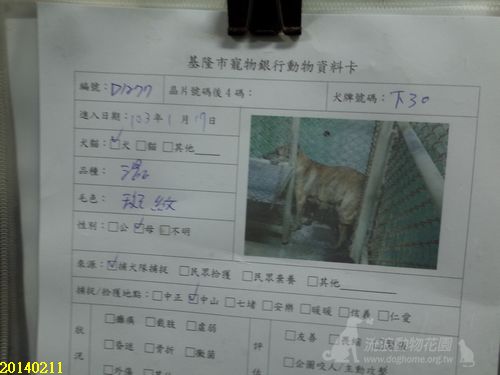 基隆市寵物銀行動物資料卡
編號：D1277 晶片號碼後4碼： 犬牌號碼：下30
進入日期：103年1月17日
犬貓：☑犬 □貓 □其他
品種：混
毛色：斑紋
性別：□公 ☑母 □不明
來源：☑捕犬隊捕捉 □民眾拾獲 □民眾棄養 □其他
捕捉/拾獲地點：□中正 ☑中山 □七堵 □安樂 □暖暖 □信義 □仁愛
狀況 □癱瘓 □截肢 □虛弱
□昏迷 □骨折 □黴菌
□外傷 □其他
評估 □友善 □畏縮
□公園咬人/主動攻擊
動物花園
www.doghome.org.tw
20140211